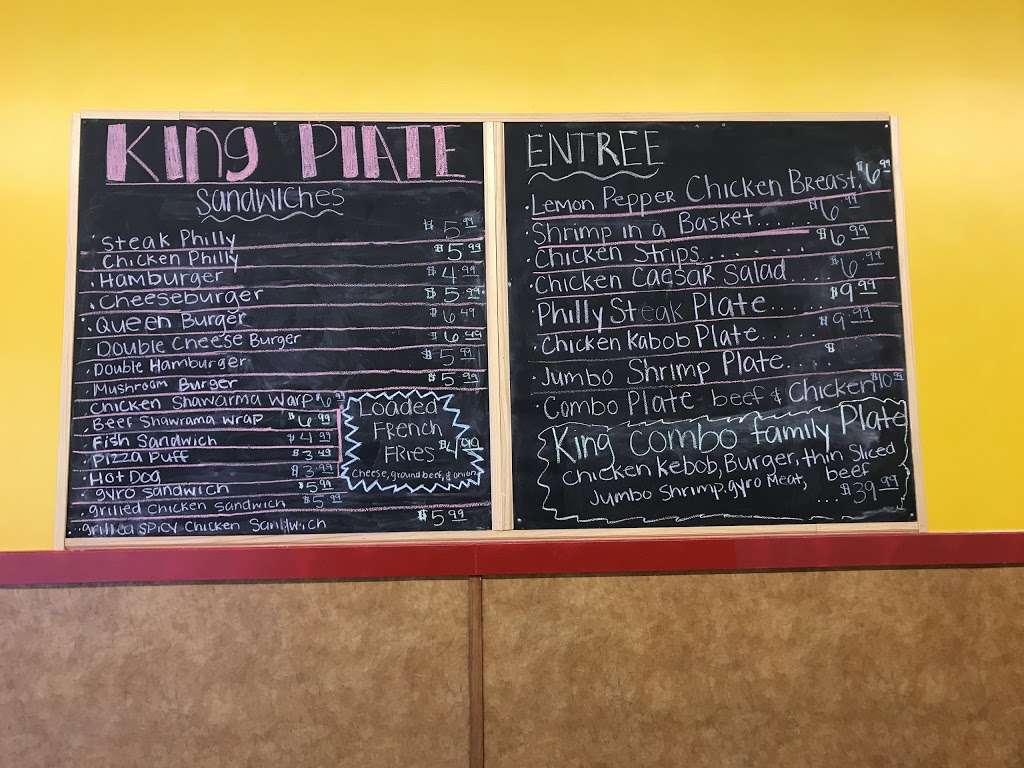 King PlATE
SANDWICHES
Steak Philly $5.99
Chicken Philly $5.99
. Hamburger $4.99
. Cheeseburger $5.99
. Queen Burger $6.49
. Double Cheese Burger $6.49
. Double Hamburger $5.99
. Mushroom Burger $5.99
. Chicken Shawarma Warp $6.99
. Beef Shawrama wrap $6.99
. Fish Sandwich $4.99
. Pizza Puff $3.49
. Hot Dog $3.99
. gyro sandwich $5.99
. grilled chicken sandwich $5.99
. grilled spicy Chicken Sandwich $5.99
Loaded
French
Fries $4.99
Cheese, ground beef, & onion
ENTREE
. Lemon Pepper Chicken Breast. $6.99
. Shrimp in a Basket.... $6.99
. Chicken Strips..... $6.99
. Chicken Caesar Salad... $6.99
. Philly Steak Plate... $9.99
. Chicken Kabob Plate.... $9.99
. Jumbo Shrimp Plate.... $
. Combo Plate beef & Chicken $10.99
King combo family Plate
Chicken Kebob, Burger, thin Sliced
beef
Jumbo Shrimp, gyro Meat,
...$39.99